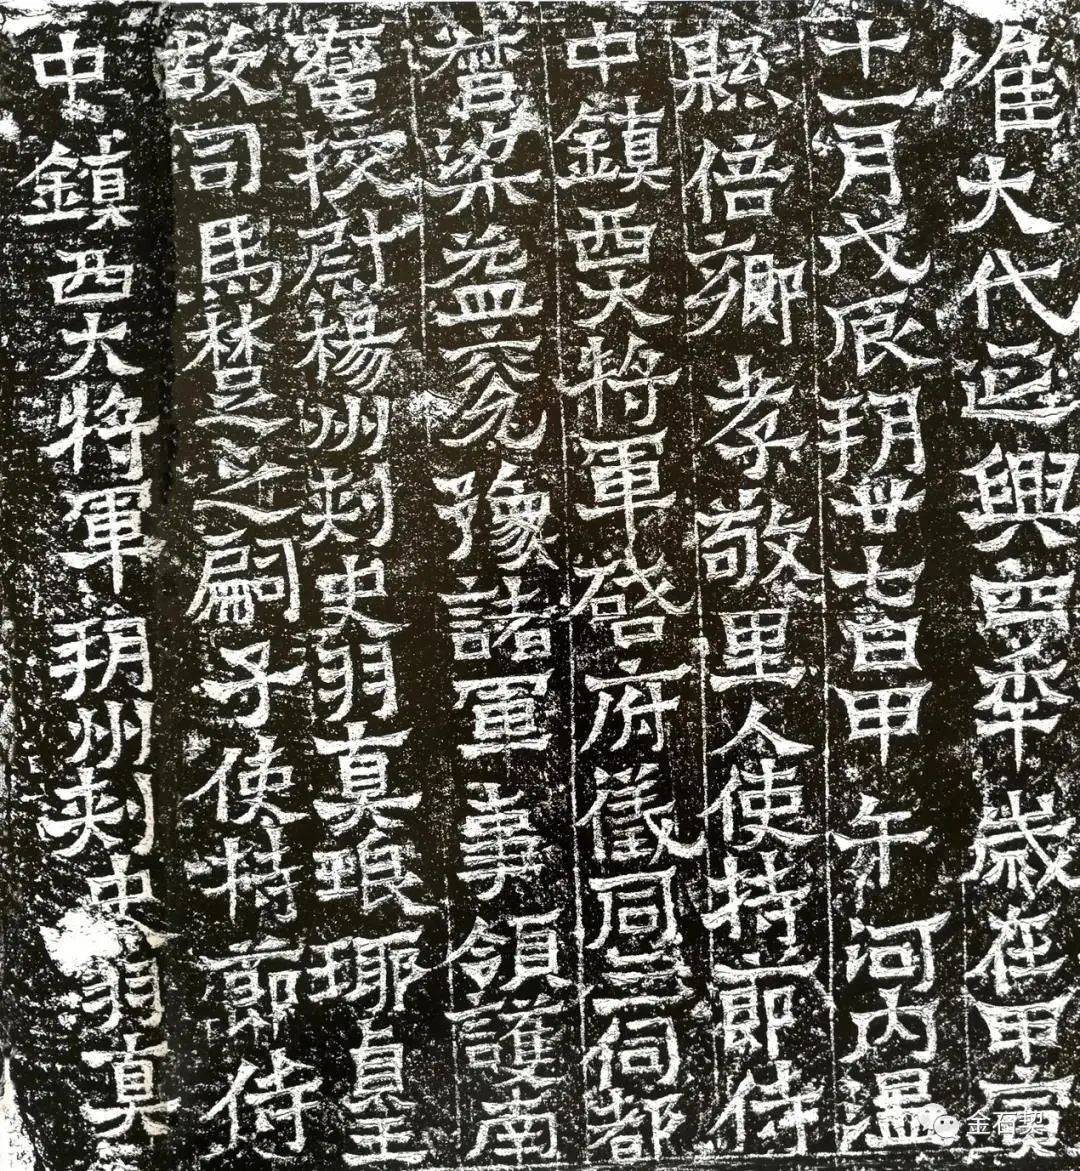 唯大代延興四年歲在甲寅
十一月戊辰朔廿七日甲午河内温
縣倍鄉孝敬里人使持即侍
中鎮西大將軍啓府儀同三伺都
督梁益兖豫諸軍事領護南
蠻校尉楊州刺史羽真琅琊貞王
故司馬楚之之嗣子使持節侍
中鎮西大將軍朔州刺史羽真
金石契